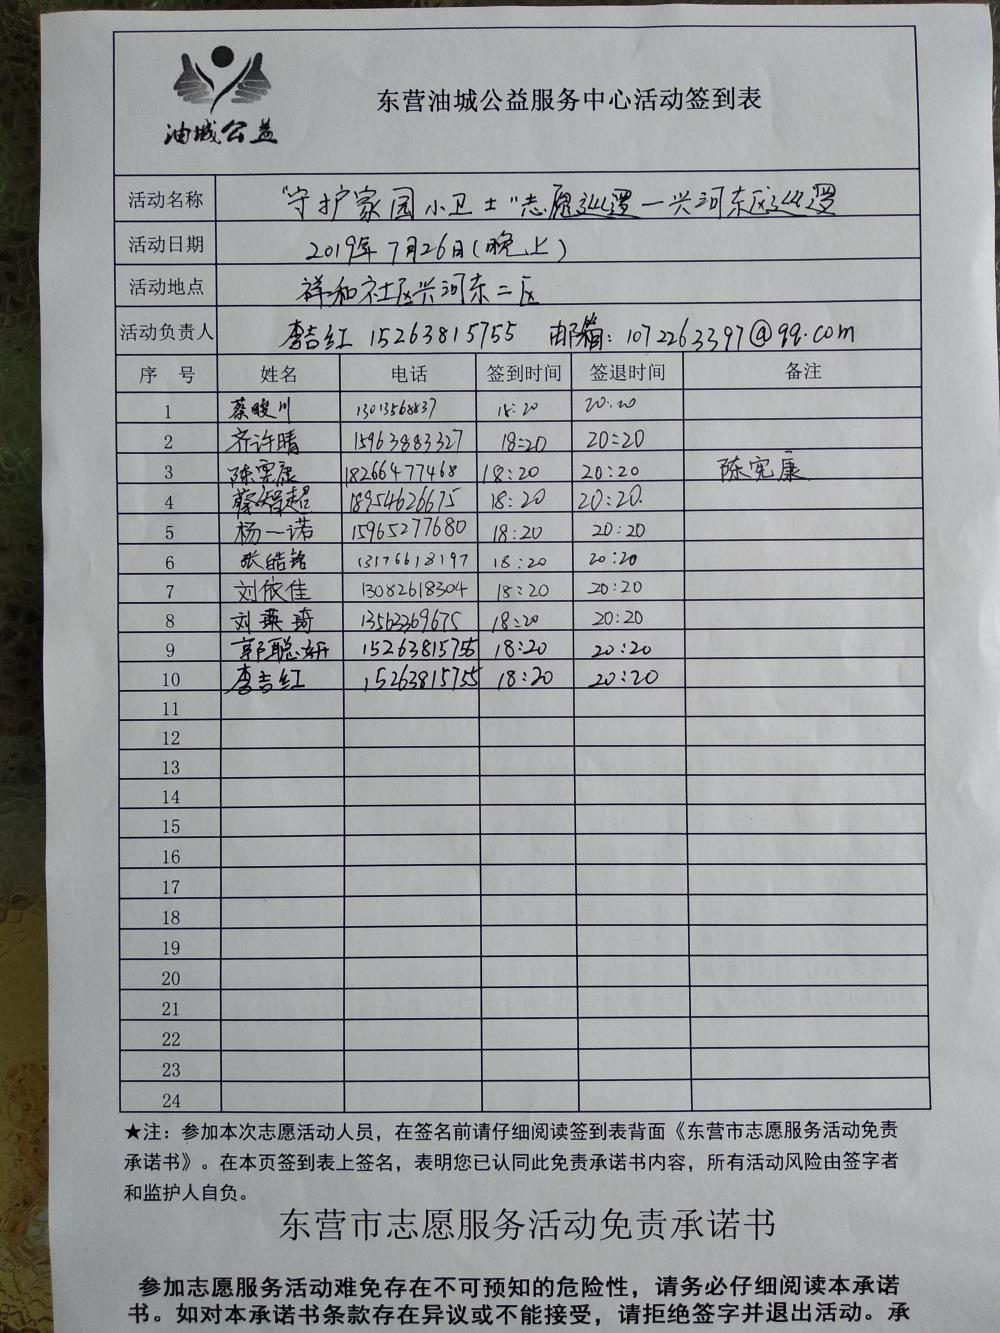 油城公益
东营油城公益服务中心活动签到表
活动名称 "守护家园小卫士"志愿巡逻—兴河东区巡逻
活动日期 2019年7月26日(晚上)
活动地点 祥和社区兴河东二区
活动负责人 李吉红 15263815755 邮箱: 1072263397@qq.com
序 号 姓名 电话 签到时间 签退时间 备注
1 蔡晙川 18:20 20:20
2 齐许晴 15963883327 18:20 20:20
3 陈宪康 18266477468 18:20 20:20 陈宪康
4 蔡智超 18954626675 18:20 20:20.
5 杨一诺 15965277680 18:20 20:20
6 张皓铭 13176618197 18:20 20:20
7 刘依佳 13082618304 18:20 20:20
8 刘燕琦 13562369675 18:20 20:20
9 郭聪妍 15263815755 18:20 20:20
10 李吉红 15263815755 18:20 20:20
11
12
13
14
15
16
17
18
19
20
21
22
23
24
★注：参加本次志愿活动人员，在签名前请仔细阅读签到表背面《东营市志愿服务活动免责
承诺书》。在本页签到表上签名，表明您已认同此免责承诺书内容，所有活动风险由签字者
和监护人自负。
东营市志愿服务活动免责承诺书
参加志愿服务活动难免存在不可预知的危险性，请务必仔细阅读本承诺
书。如对本承诺书条款存在异议或不能接受，请拒绝签字并退出活动。承